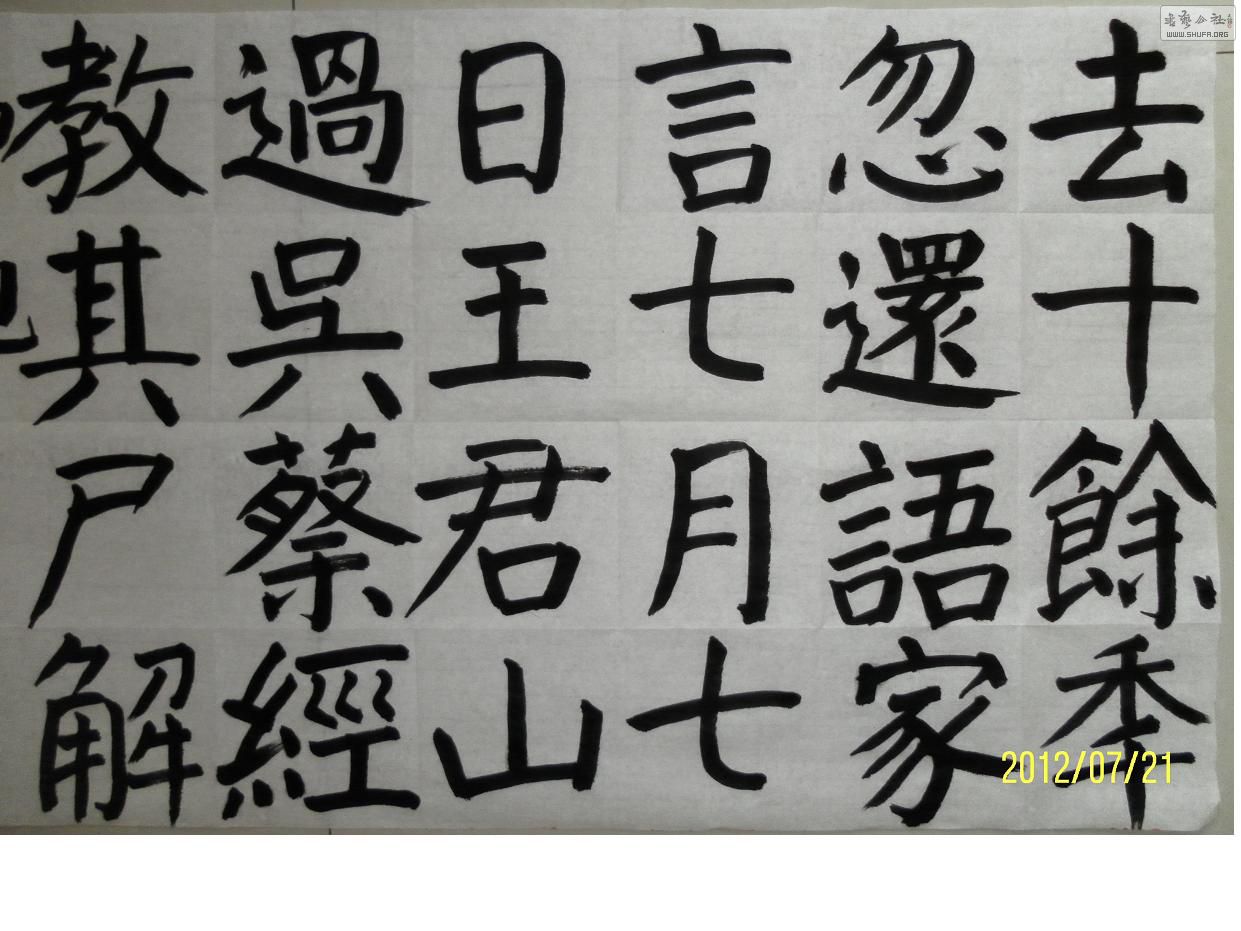 去十餘秊
忽還語家
言七月七
日王君山
過吳蔡經
教其尸解
書藝公社
WWW.SHUFA.ORG
2012/07/21